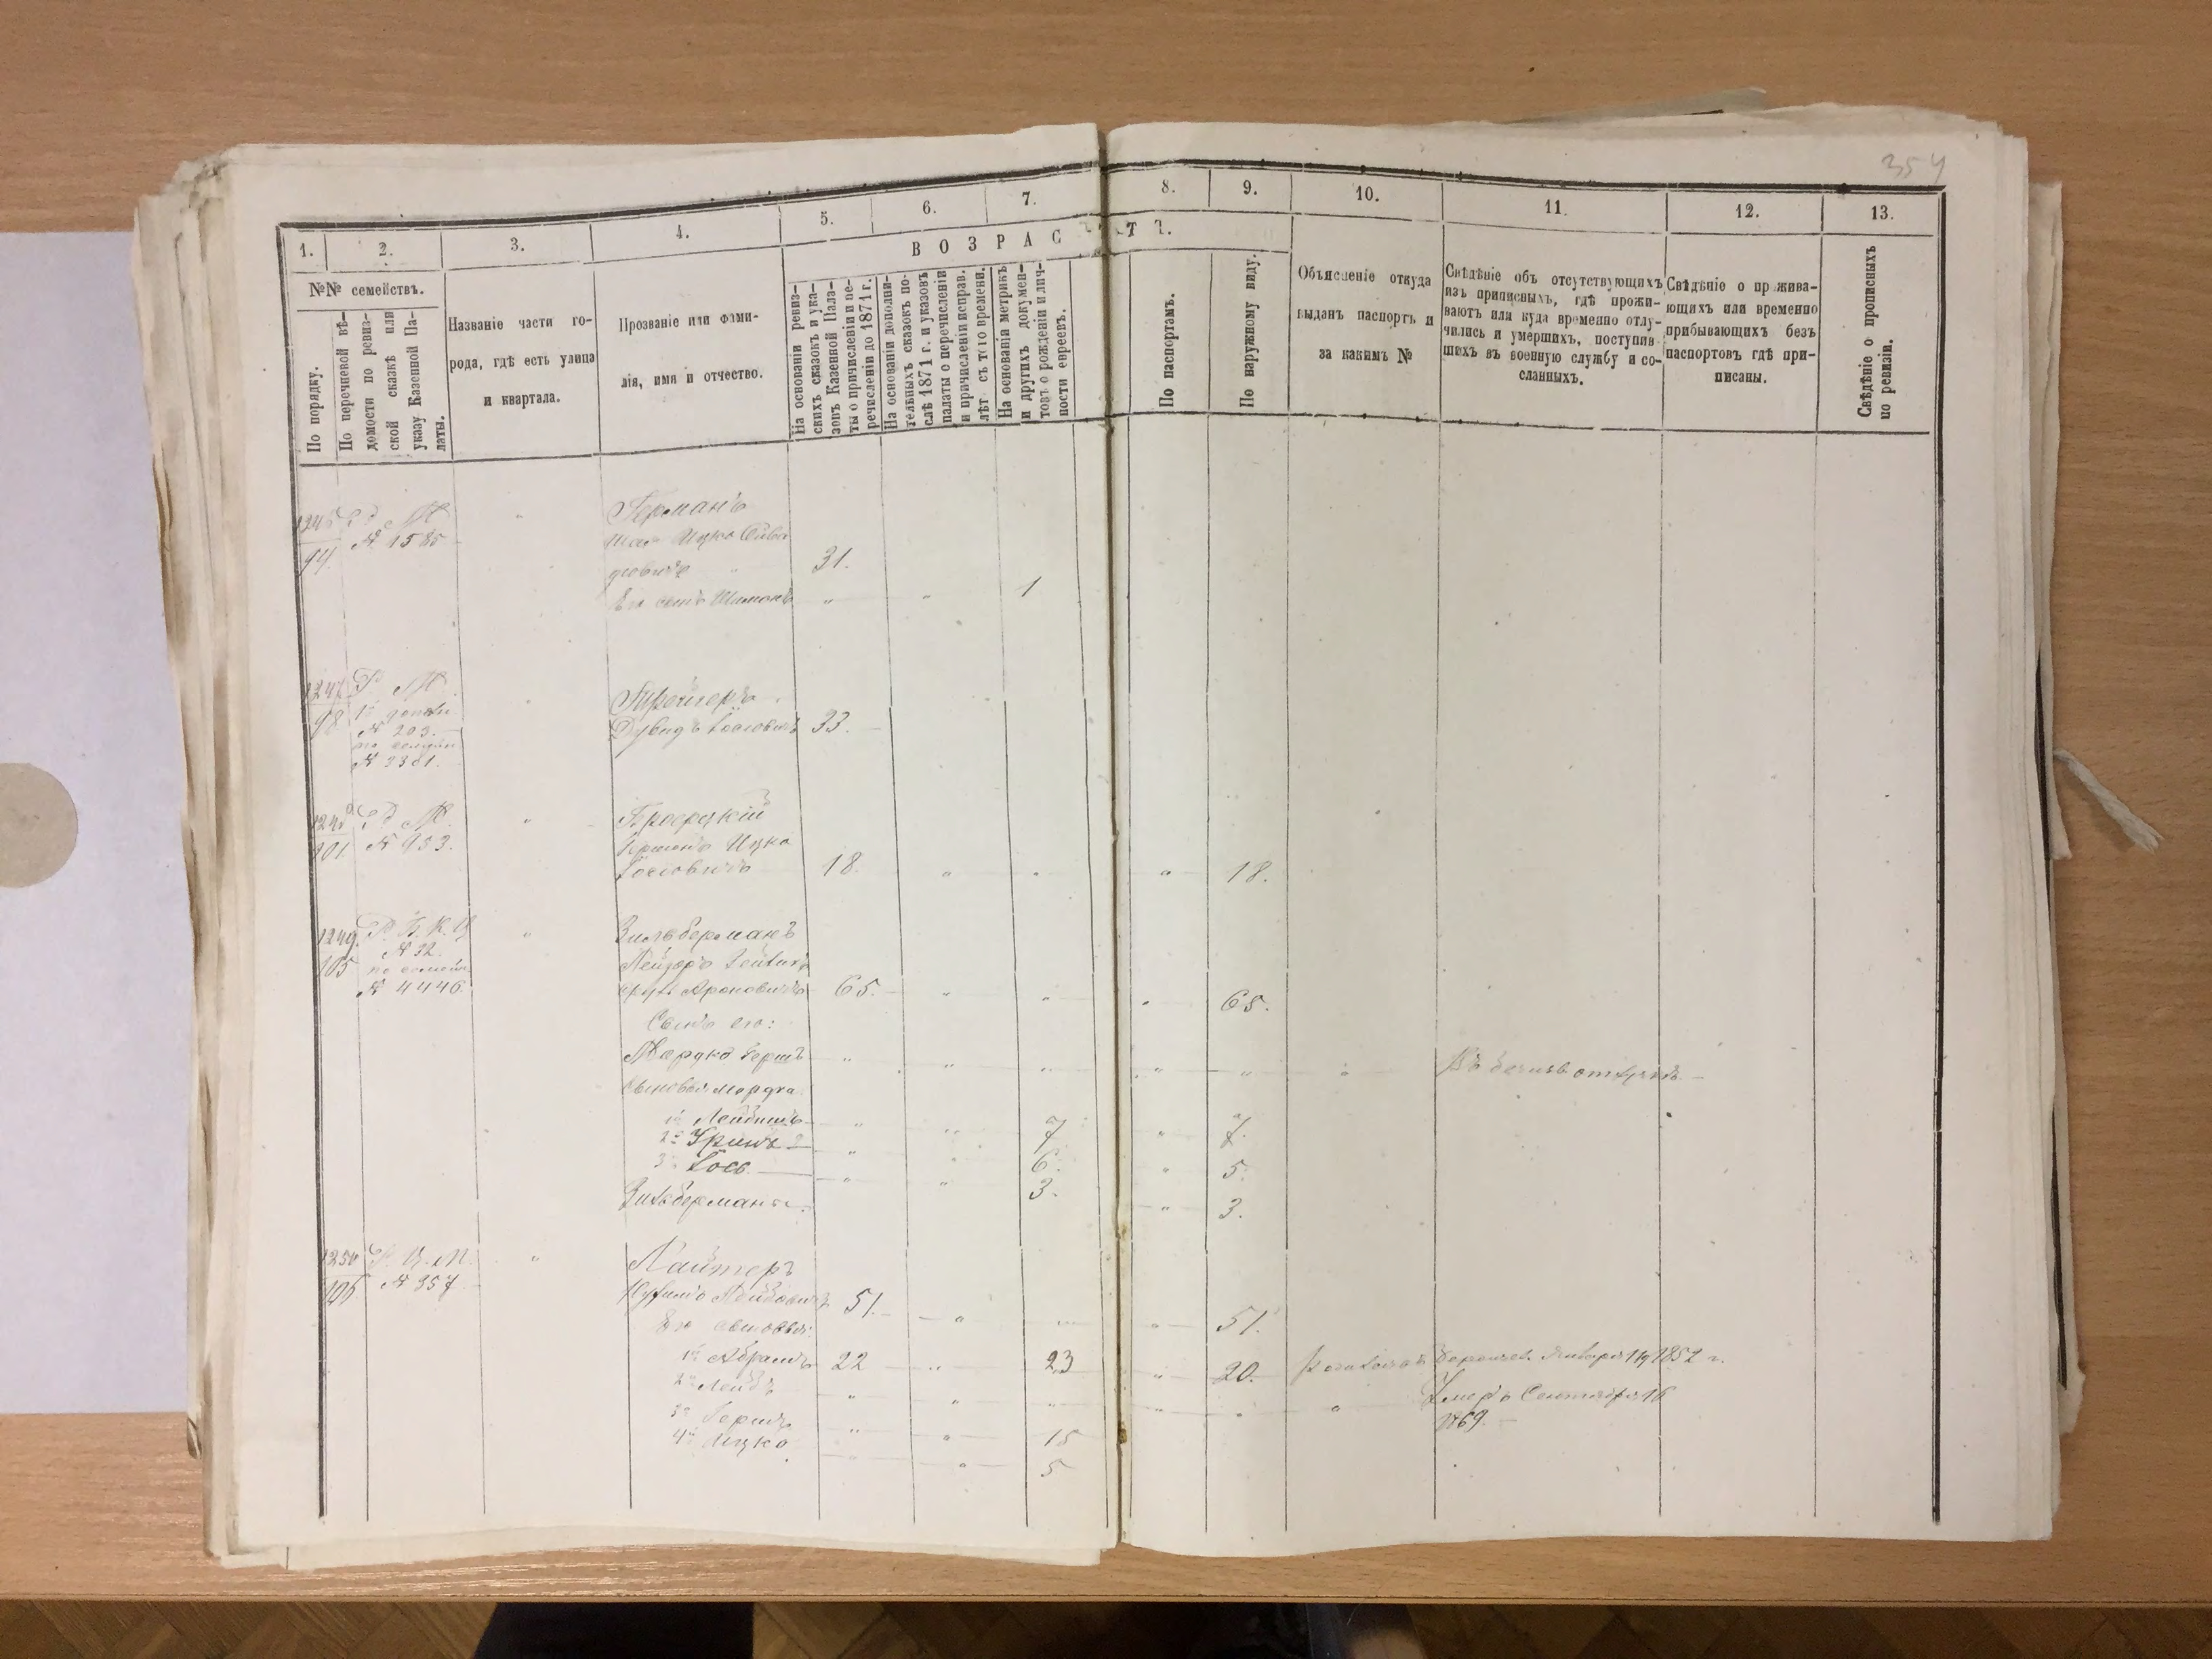 354
1.
2.
3.
4.
5.
6.
7.
8.
9.
10.
11.
12.
13.
ВОЗРАСТЪ.
№№ семействъ.
По порядку.
По перечневой вѣ-
домости по ревиз-
ской сказкѣ или
указу Казенной Па-
латы.
Названіе части го-
рода, гдѣ есть улица
и квартала.
Прозваніе или фами-
лія, имя и отчество.
На основаніи ревиз-
скихъ сказокъ и ука-
зовъ Казенной Пала-
ты о причисленіи и пе-
речисленіи до 1871 г.
На основаніи дополни-
тельныхъ сказокъ по-
слѣ 1871 г. и указовъ
палаты о перечисленіи
и причисленіи исправ.
лѣт съ того времени.
На основаніи метрикъ
и другихъ докумен-
товъ о рожденіи и лич-
ности евреевъ.
По паспортамъ.
По наружному виду.
Объясненіе откуда
выданъ паспортъ и
за какимъ №
Свѣдѣніе объ отсутствующихъ
изъ приписныхъ, гдѣ прожи-
ваютъ или куда временно отлу-
чились и умершихъ, поступив-
шихъ въ военную службу и со-
сланныхъ.
Свѣдѣніе о прожива-
ющихъ или временно
прибывающихъ безъ
паспортовъ гдѣ при-
писаны.
Свѣдѣніе о прописныхъ
по ревизіи.
1246
94
№ 1585
Германъ
Ицко
31.
Его сынъ Шимонъ " " 1
1247
98
№ 203.
Дувидъ Іосіовичъ 33.
1248
101
№ 933.
Ицко
Іосіовичъ 18. " " " 18.
1249.
105
Р. К. Ц
№ 32.
по семейн
№ 4446.
Зильберманъ
Лейзоръ
Ароновичъ 65. " " " 65.
Сынъ его:
Мордко Герш " " " " " " Въ безизв отлучкѣ.
Сыновья Мордка
1й Лейбишъ " " 7 " 7.
2й " " 6. " 5.
3й Іось " " 3. " 3.
Зильберманы.
1250
106
№ 357
51. " " " 51.
Его сыновья:
1й Абрамъ 22 " 23 " 20. Января 119 1852 г.
2й Лейбъ " " " " " " Умеръ Сентября 16
1869.
3й Гершъ " " 15
4й Ицко " " 5